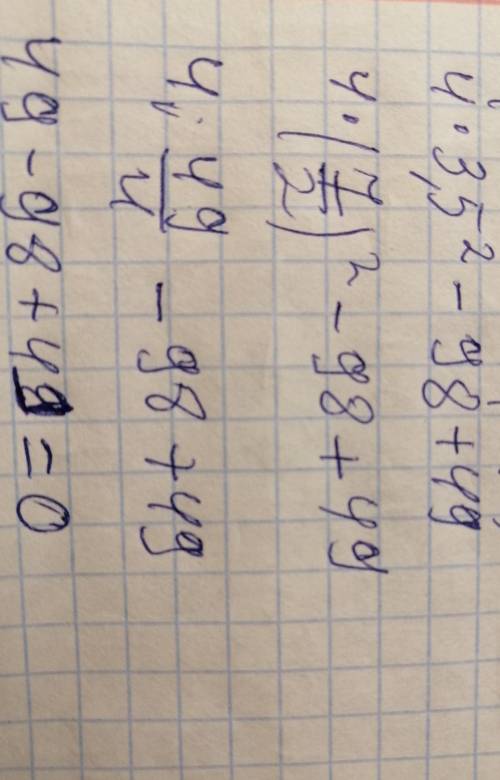 4·3,5² - 98 + 49
4·(7/2)² - 98 + 49
4·49/4 - 98 + 49
49 - 98 + 49 = 0